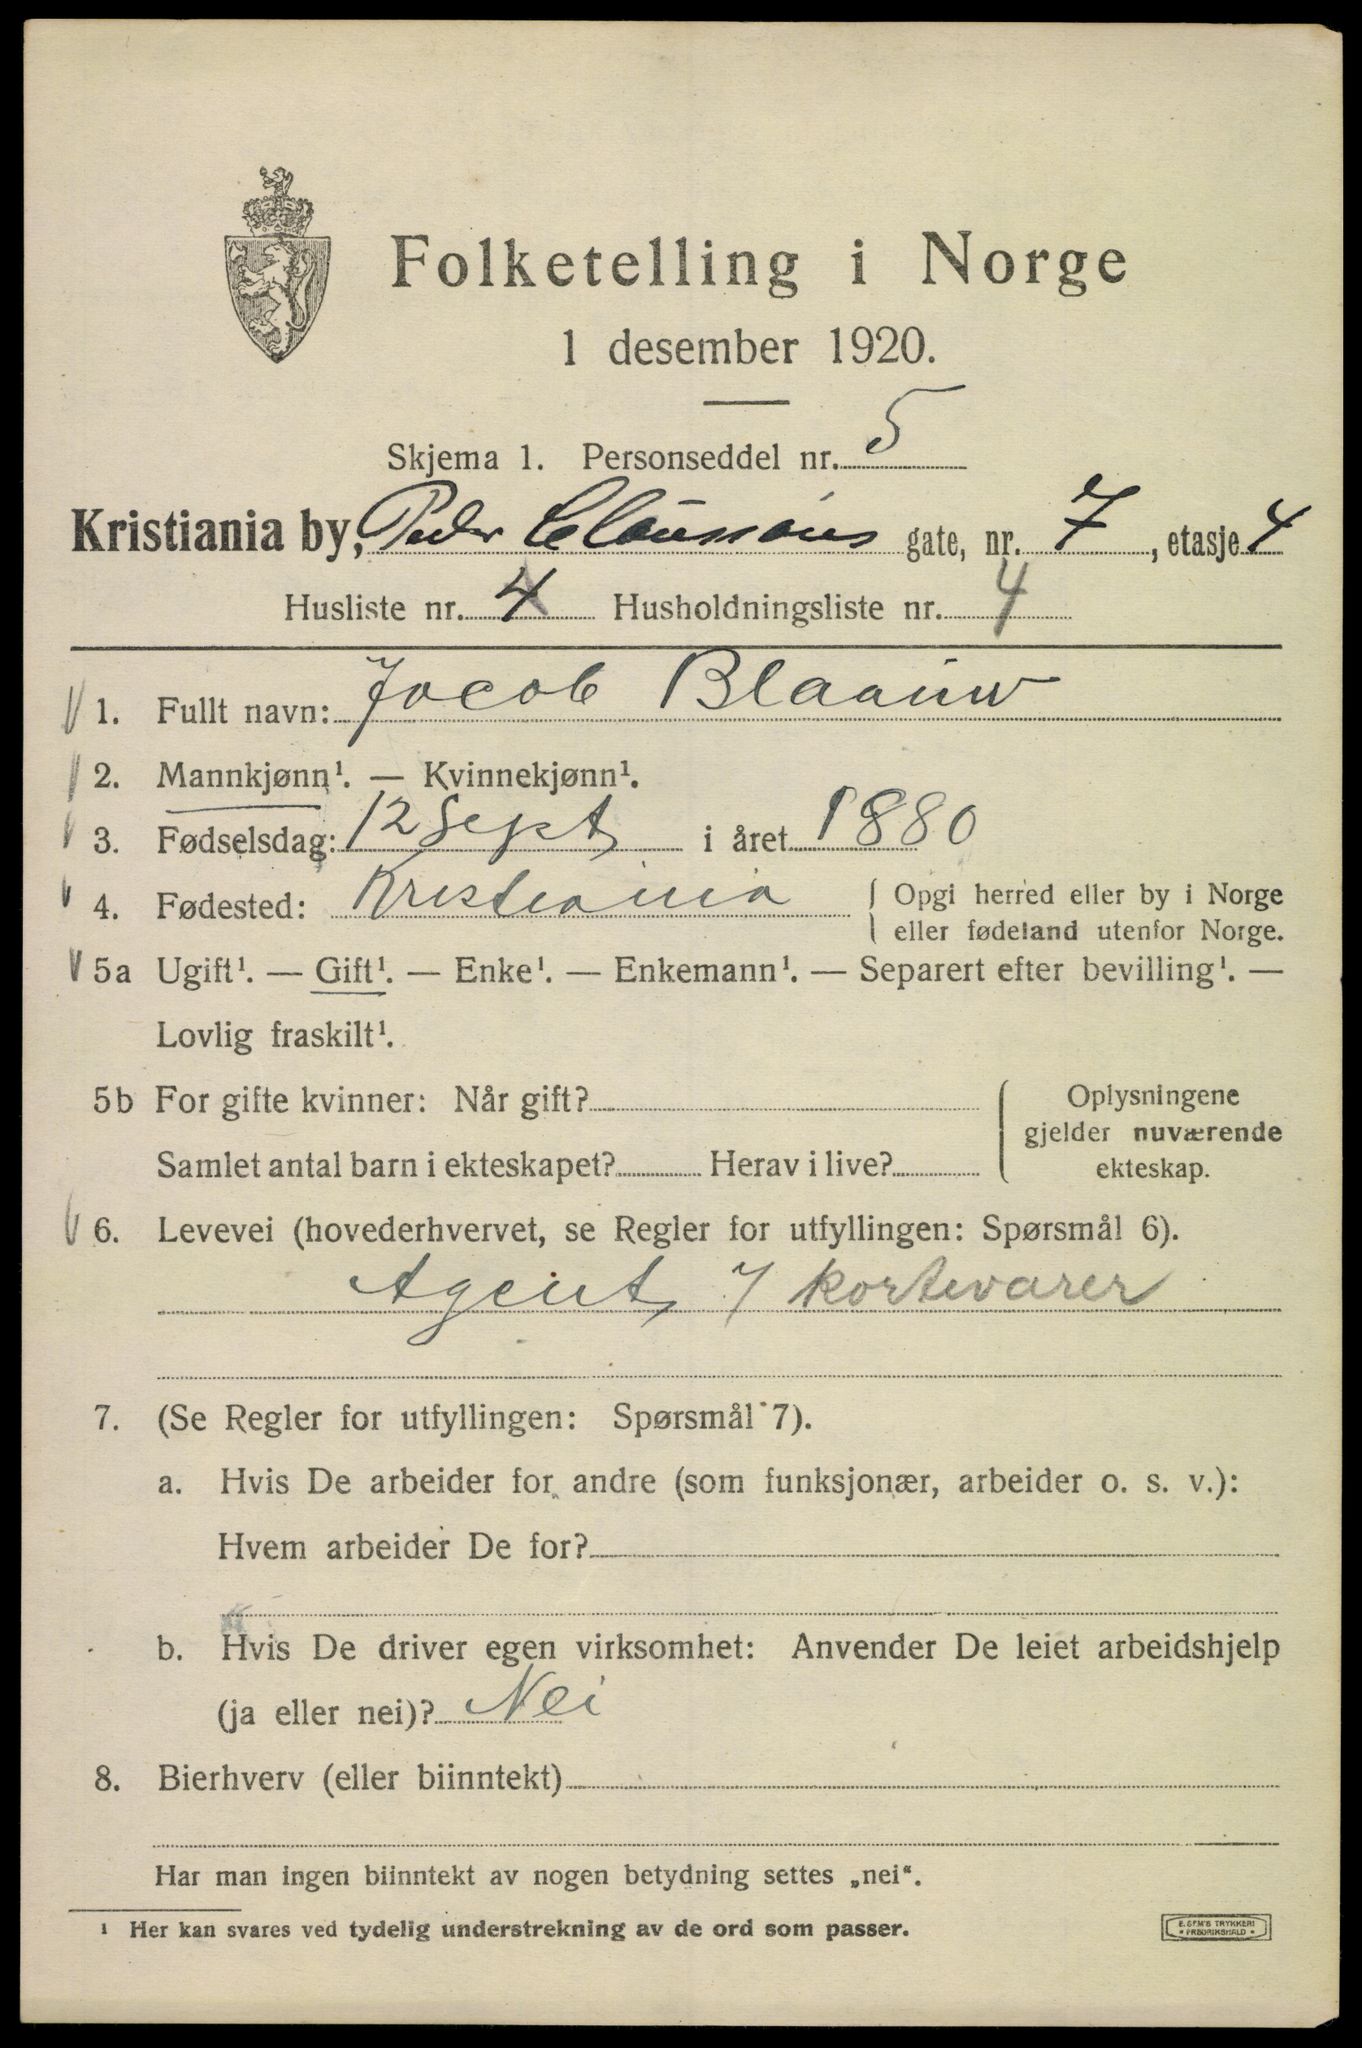 Folketelling i Norge
1 desember 1920.
Skjema 1. Personseddel nr. 5
Kristiania by, Peder Claussøns gate, nr. 7, etasje 4
Husliste nr. 4 Husholdningsliste nr. 4
1. Fullt navn: Jacob Blaauw
2. Mannkjønn¹. — Kvinnekjønn¹.
3. Fødselsdag: 12 Sept i året 1880
4. Fødested: Kristiania { Opgi herred eller by i Norge
eller fødeland utenfor Norge.
5a Ugift¹. — Gift¹. — Enke¹. — Enkemann¹. — Separert efter bevilling¹. —
Lovlig fraskilt¹.
5b For gifte kvinner: Når gift? { Oplysningene
gjelder nuværende
Samlet antal barn i ekteskapet? Herav i live? ekteskap.
6. Levevei (hovederhvervet, se Regler for utfyllingen: Spørsmål 6).
Agent i kortevarer
7. (Se Regler for utfyllingen: Spørsmål 7).
a. Hvis De arbeider for andre (som funksjonær, arbeider o. s. v.):
Hvem arbeider De for?
b. Hvis De driver egen virksomhet: Anvender De leiet arbeidshjelp
(ja eller nei)? Nei
8. Bierhverv (eller biinntekt)
Har man ingen biinntekt av nogen betydning settes „nei“.
¹ Her kan svares ved tydelig understrekning av de ord som passer.
E. SEM'S TRYKKERI
* FREDRIKSHALD *